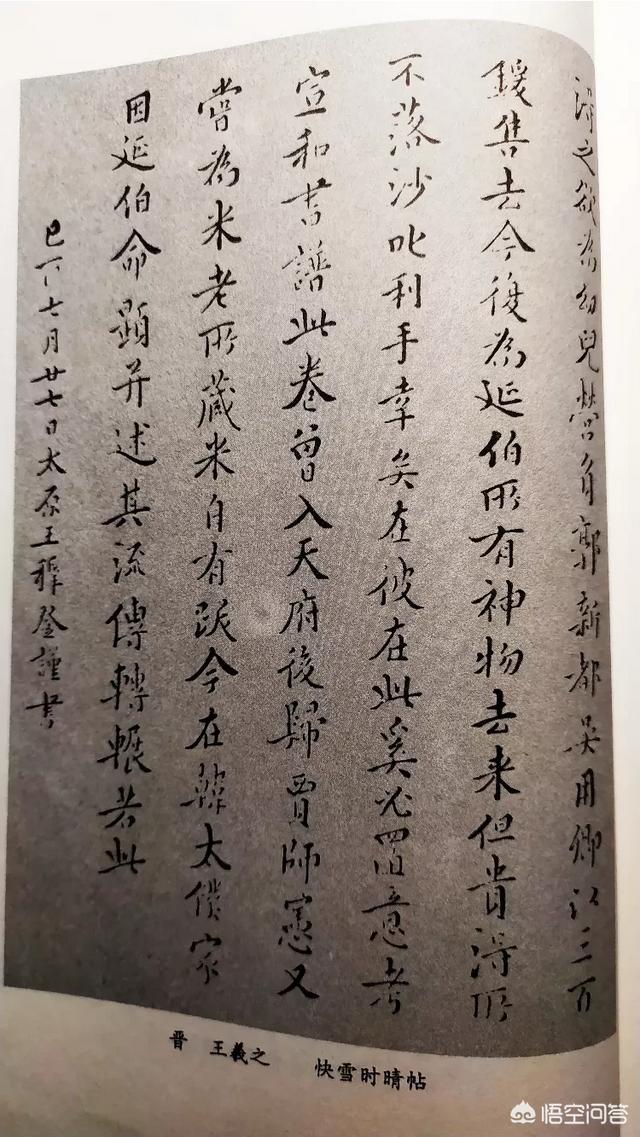 得之欲為幼兒營負郭新都吳用卿以三百
鍰售去今後為延伯所有神物去来但貴得所
不落沙叱利手幸矣在彼在此奚必置意考
宣和書譜此卷曾入天府後歸賈師憲又
嘗為米老所藏米自有跋今在韓太僕家
因延伯命題并述其流傳轉輾若此
己酉七月廿七日太原王穉登謹書
晋 王羲之 快雪时晴帖
悟空问答